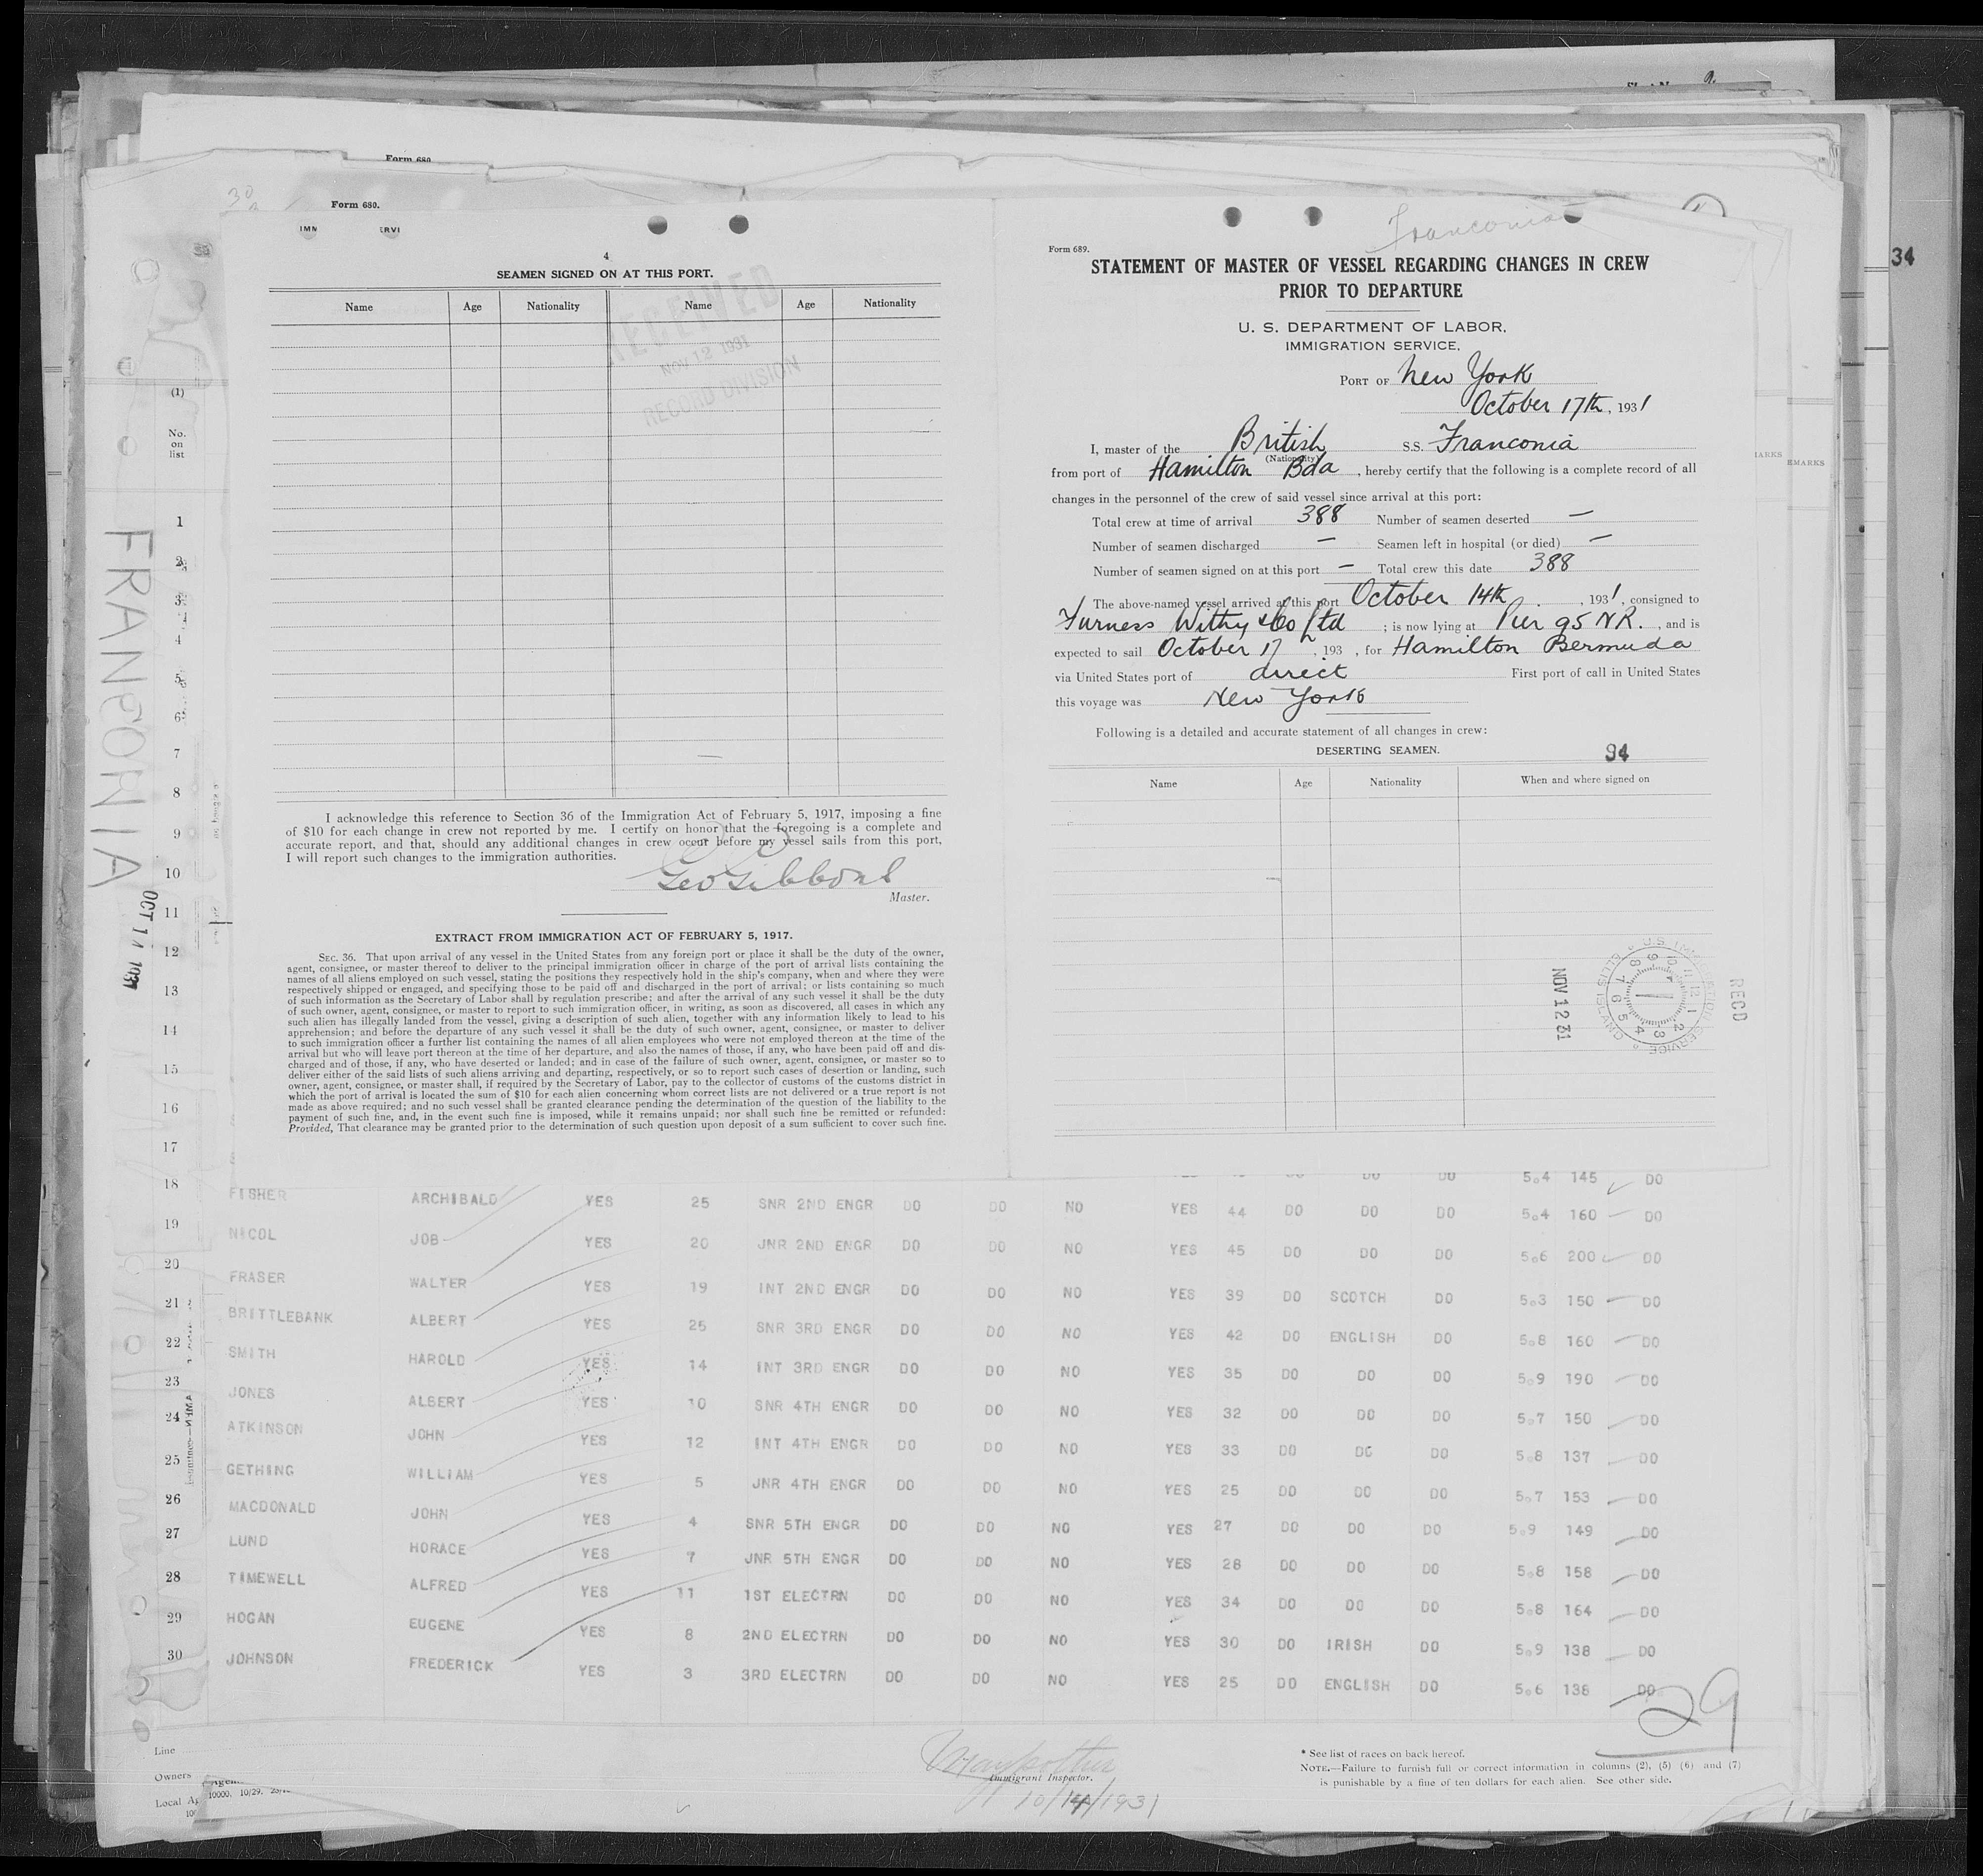 Form 680.
Form 680.
4
SEAMEN SIGNED ON AT THIS PORT.
Name Age Nationality Name Age Nationality
RECEIVED
NOV 12 1931
RECORD DIVISION
I acknowledge this reference to Section 36 of the Immigration Act of February 5, 1917, imposing a fine
of $10 for each change in crew not reported by me. I certify on honor that the foregoing is a complete and
accurate report, and that, should any additional changes in crew occur before my vessel sails from this port,
I will report such changes to the immigration authorities.
Geo Gibbons
Master.
EXTRACT FROM IMMIGRATION ACT OF FEBRUARY 5, 1917.
SEC. 36. That upon arrival of any vessel in the United States from any foreign port or place it shall be the duty of the owner,
agent, consignee, or master thereof to deliver to the principal immigration officer in charge of the port of arrival lists containing the
names of all aliens employed on such vessel, stating the positions they respectively hold in the ship's company, when and where they were
respectively shipped or engaged, and specifying those to be paid off and discharged in the port of arrival; or lists containing so much
of such information as the Secretary of Labor shall by regulation prescribe; and after the arrival of any such vessel it shall be the duty
of such owner, agent, consignee, or master to report to such immigration officer, in writing, as soon as discovered, all cases in which any
such alien has illegally landed from the vessel, giving a description of such alien, together with any information likely to lead to his
apprehension; and before the departure of any such vessel it shall be the duty of such owner, agent, consignee, or master to deliver
to such immigration officer a further list containing the names of all alien employees who were not employed thereon at the time of the
arrival but who will leave port thereon at the time of her departure, and also the names of those, if any, who have been paid off and dis-
charged and of those, if any, who have deserted or landed; and in case of the failure of such owner, agent, consignee, or master so to
deliver either of the said lists of such aliens arriving and departing, respectively, or so to report such cases of desertion or landing, such
owner, agent, consignee, or master shall, if required by the Secretary of Labor, pay to the collector of customs of the customs district in
which the port of arrival is located the sum of $10 for each alien concerning whom correct lists are not delivered or a true report is not
made as above required; and no such vessel shall be granted clearance pending the determination of the question of the liability to the
payment of such fine, and, in the event such fine is imposed, while it remains unpaid; nor shall such fine be remitted or refunded:
Provided, That clearance may be granted prior to the determination of such question upon deposit of a sum sufficient to cover such fine.
Franconia
Form 689.
STATEMENT OF MASTER OF VESSEL REGARDING CHANGES IN CREW
PRIOR TO DEPARTURE
U. S. DEPARTMENT OF LABOR,
IMMIGRATION SERVICE,
PORT OF New York
October 17th, 1931
I, master of the British S.S. Franconia
(Nationality)
from port of Hamilton Bda, hereby certify that the following is a complete record of all
changes in the personnel of the crew of said vessel since arrival at this port:
Total crew at time of arrival 388 Number of seamen deserted —
Number of seamen discharged — Seamen left in hospital (or died) —
Number of seamen signed on at this port — Total crew this date 388
The above-named vessel arrived at this port October 14th, 1931, consigned to
Furness Withy & Co Ltd; is now lying at Pier 95 N.R., and is
expected to sail October 17th, 193 , for Hamilton Bermuda
via United States port of direct First port of call in United States
this voyage was New York
Following is a detailed and accurate statement of all changes in crew:
DESERTING SEAMEN. 94
Name Age Nationality When and where signed on
U.S. IMMIGRATION SERVICE ELLIS ISLAND
NOV 12 31
RECD
34
EMARKS
FRANCONIA
OCT 14 1931
(1)
No.
on
list
1
2
3
4
5
6
7
8
9
10
11
12
13
14
15
16
17
5.4 145 DO
18 FISHER ARCHIBALD YES 25 SNR 2ND ENGR DO DO NO YES 44 DO DO DO 5.4 160 DO
19 NICOL JOB YES 20 JNR 2ND ENGR DO DO NO YES 45 DO DO DO 5.6 200 DO
20 FRASER WALTER YES 19 INT 2ND ENGR DO DO NO YES 39 DO SCOTCH DO 5.3 150 DO
21 BRITTLEBANK ALBERT YES 25 SNR 3RD ENGR DO DO NO YES 42 DO ENGLISH DO 5.8 160 DO
22 SMITH HAROLD YES 14 INT 3RD ENGR DO DO NO YES 35 DO DO DO 5.9 190 DO
23 JONES ALBERT YES 10 SNR 4TH ENGR DO DO NO YES 32 DO DO DO 5.7 150 DO
24 ATKINSON JOHN YES 12 INT 4TH ENGR DO DO NO YES 33 DO DO DO 5.8 137 DO
25 GETHING WILLIAM YES 5 JNR 4TH ENGR DO DO NO YES 25 DO DO DO 5.7 153 DO
26 MACDONALD JOHN YES 4 SNR 5TH ENGR DO DO NO YES 27 DO DO DO 5.9 149 DO
27 LUND HORACE YES 7 JNR 5TH ENGR DO DO NO YES 28 DO DO DO 5.8 158 DO
28 TIMEWELL ALFRED YES 11 1ST ELECTRN DO DO NO YES 34 DO DO DO 5.8 164 DO
29 HOGAN EUGENE YES 8 2ND ELECTRN DO DO NO YES 30 DO IRISH DO 5.9 138 DO
30 JOHNSON FREDERICK YES 3 3RD ELECTRN DO DO NO YES 25 DO ENGLISH DO 5.6 136 DO
29
Line
Owners
Local Ag
Immigrant Inspector.
10/14/1931
* See list of races on back hereof.
NOTE.—Failure to furnish full or correct information in columns (2), (5) (6) and (7)
is punishable by a fine of ten dollars for each alien. See other side.